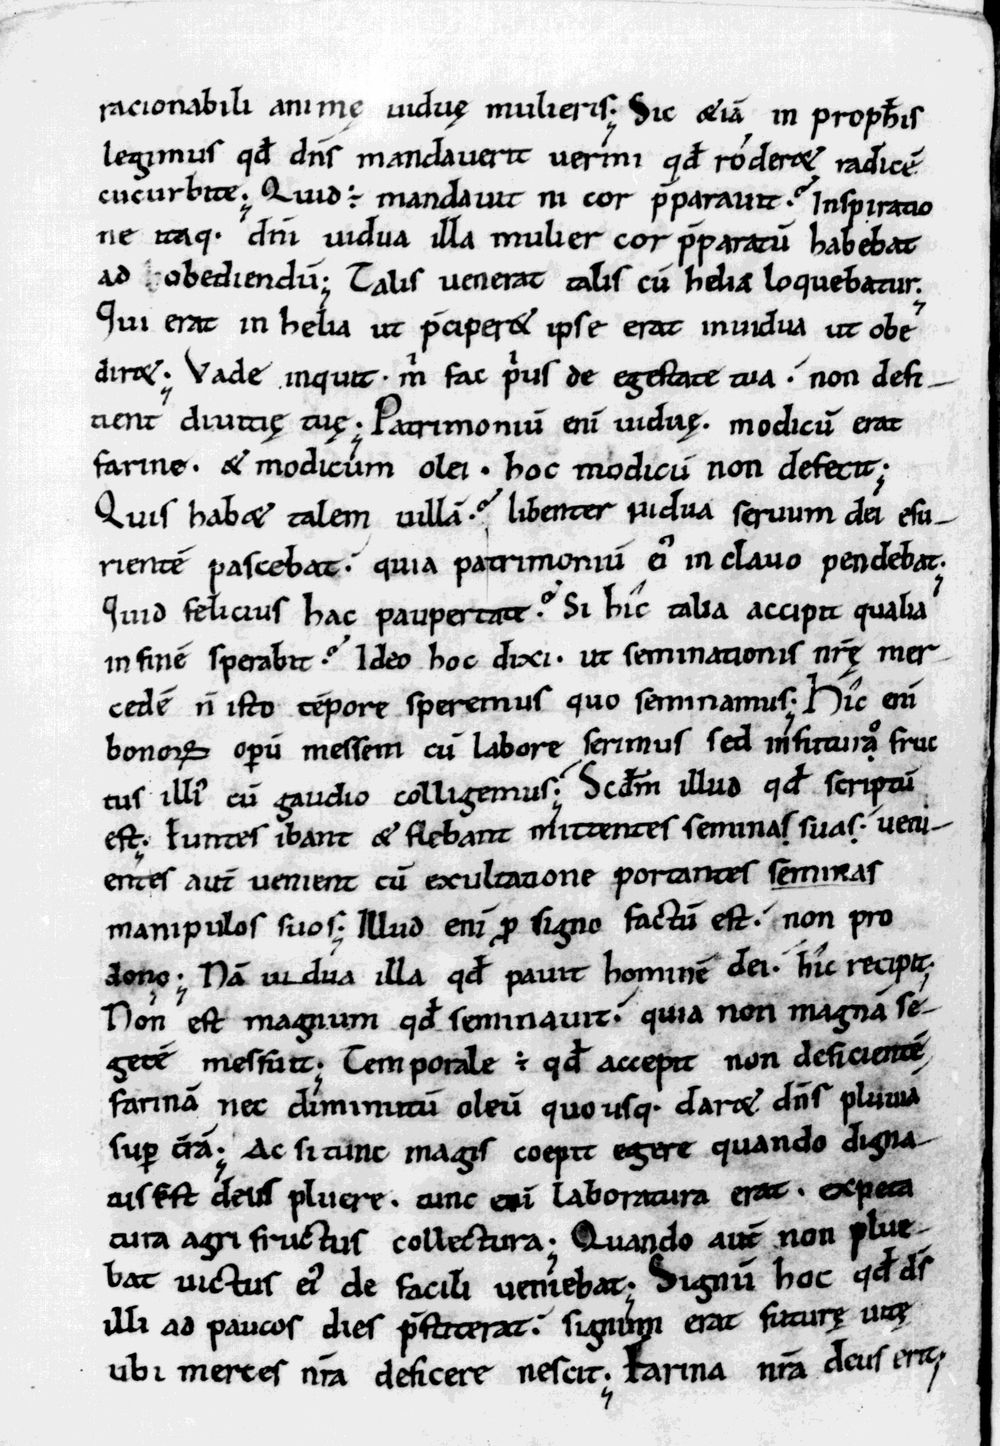 racionabili animę uiduę mulieris; Sic &iā in proph̄is
legimus qd̄ dn̄s mandauerit uermi qd̄ róder& radicē
cucurbite; Quid ÷ mandauit ni cor p̄parauit.? Inspiratio
ne itaq· dn̄i uidua illa mulier cor p̄paratū habebat
ad obediendū; Talis uenerat talis cū helia loquebatur;
Qui erat in helia ut p̄ciper& ipse erat inuidua ut obe
dir&; Vade inquit· m̄ fac p̓us de egestate tua· non defi-
tient diuitię tuę; Patrimoniū enī uiduę. modicū erat
farine. & modicum olei. hoc modicū non defecit;
Quis hab& talem uillā.? libenter uidua seruum dei esu-
rientē pascebat· quia patrimoniū ei᾽ in clauo pendebat;
Quid felicius hac paupertate.? Si hic talia accipit qualia
in finē sperabit.? Ideo hoc dixi. ut seminationis nr̄ę mer-
cedē n̄ isto tēpore speremus quo seminamus; Hic enī
bonoꝝ opū messem cū labore serimus sed infuturaͦ fruc
tus illi᾽ cū gaudio colligemus; Scd̄m illud qd̄ scriptū
est; Euntes ibant & flebant mittentes seminaṣ suaṣ· ueni-
entes aut̄ uenient cū exultatione portantes seminas
manipulos suos; Illud enī ꝓ signo factū est· non pro
dono; Nā uidua illa qd̄ pauit hominē dei. hic recipit;
Non est magnum qd̄ seminauit· quia non magnā se-
getē messuit; Temporale ÷ qd̄ accepit non deficientē
farinā nec diminutū oleū quousq· dar& dn̄s pluuia
suꝑ tr̄ā; Ac si tunc magis coepit egere quando digna-
tus est deus pluere. tunc enī laboratura erat. expeta
tura agri fructus collectura; Quando aut̄ non plue-
bat uictus ei᾽ de facili ueniebat; Signū hoc qd̄ ds̄
illi ad paucos dies p̄stiterat· signum erat futurę uitę
ubi merces nr̄a deficere nescit; Farina nr̄a deus erit;